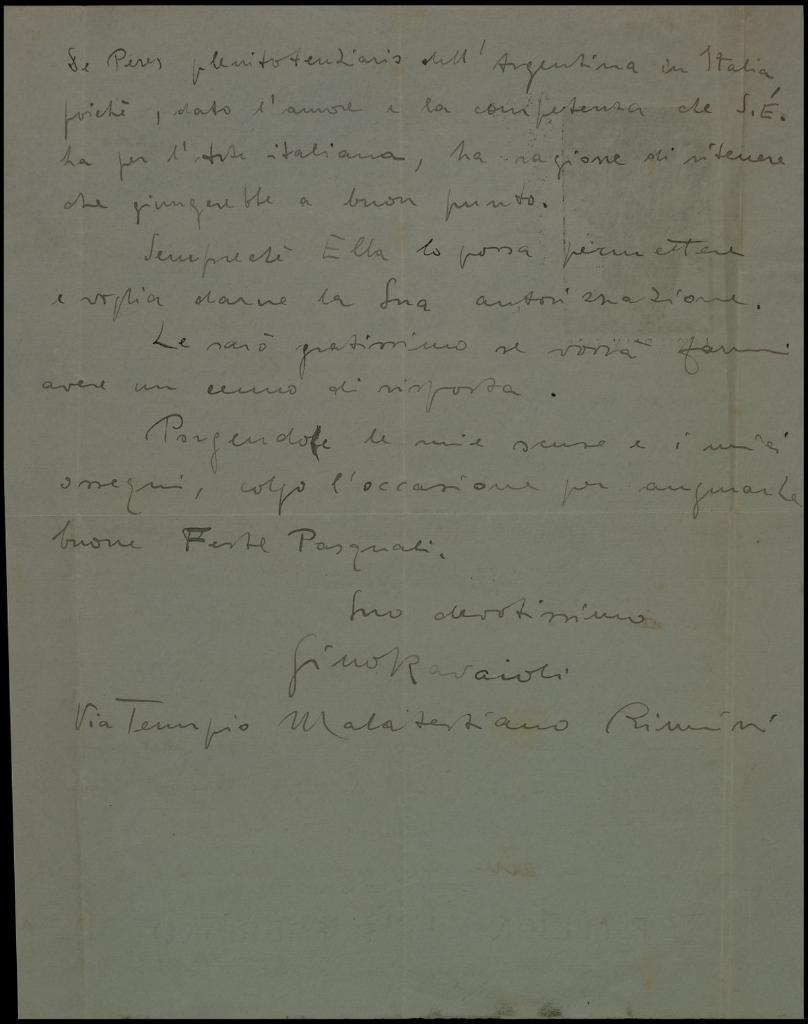 De Peres plenitotenziario dell'Argentina in Italia
poichè, dato l'amore e la competenza che S.E.
ha per l'Arte italiana, ha ragione di ritenere
che giungerebbe a buon punto.
Semprechè Ella lo possa permettere
e voglia darne la Sua autorizzazione.
Le sarò gratissimo se vorrà farmi
avere un cenno di risposta.
Porgendole le mie scuse e i miei
ossequi, colgo l'occasione per augurarLe
buone Feste Pasquali.
Suo devotissimo
Gino Ravaioli
Via Tempio Malatestiano Rimini